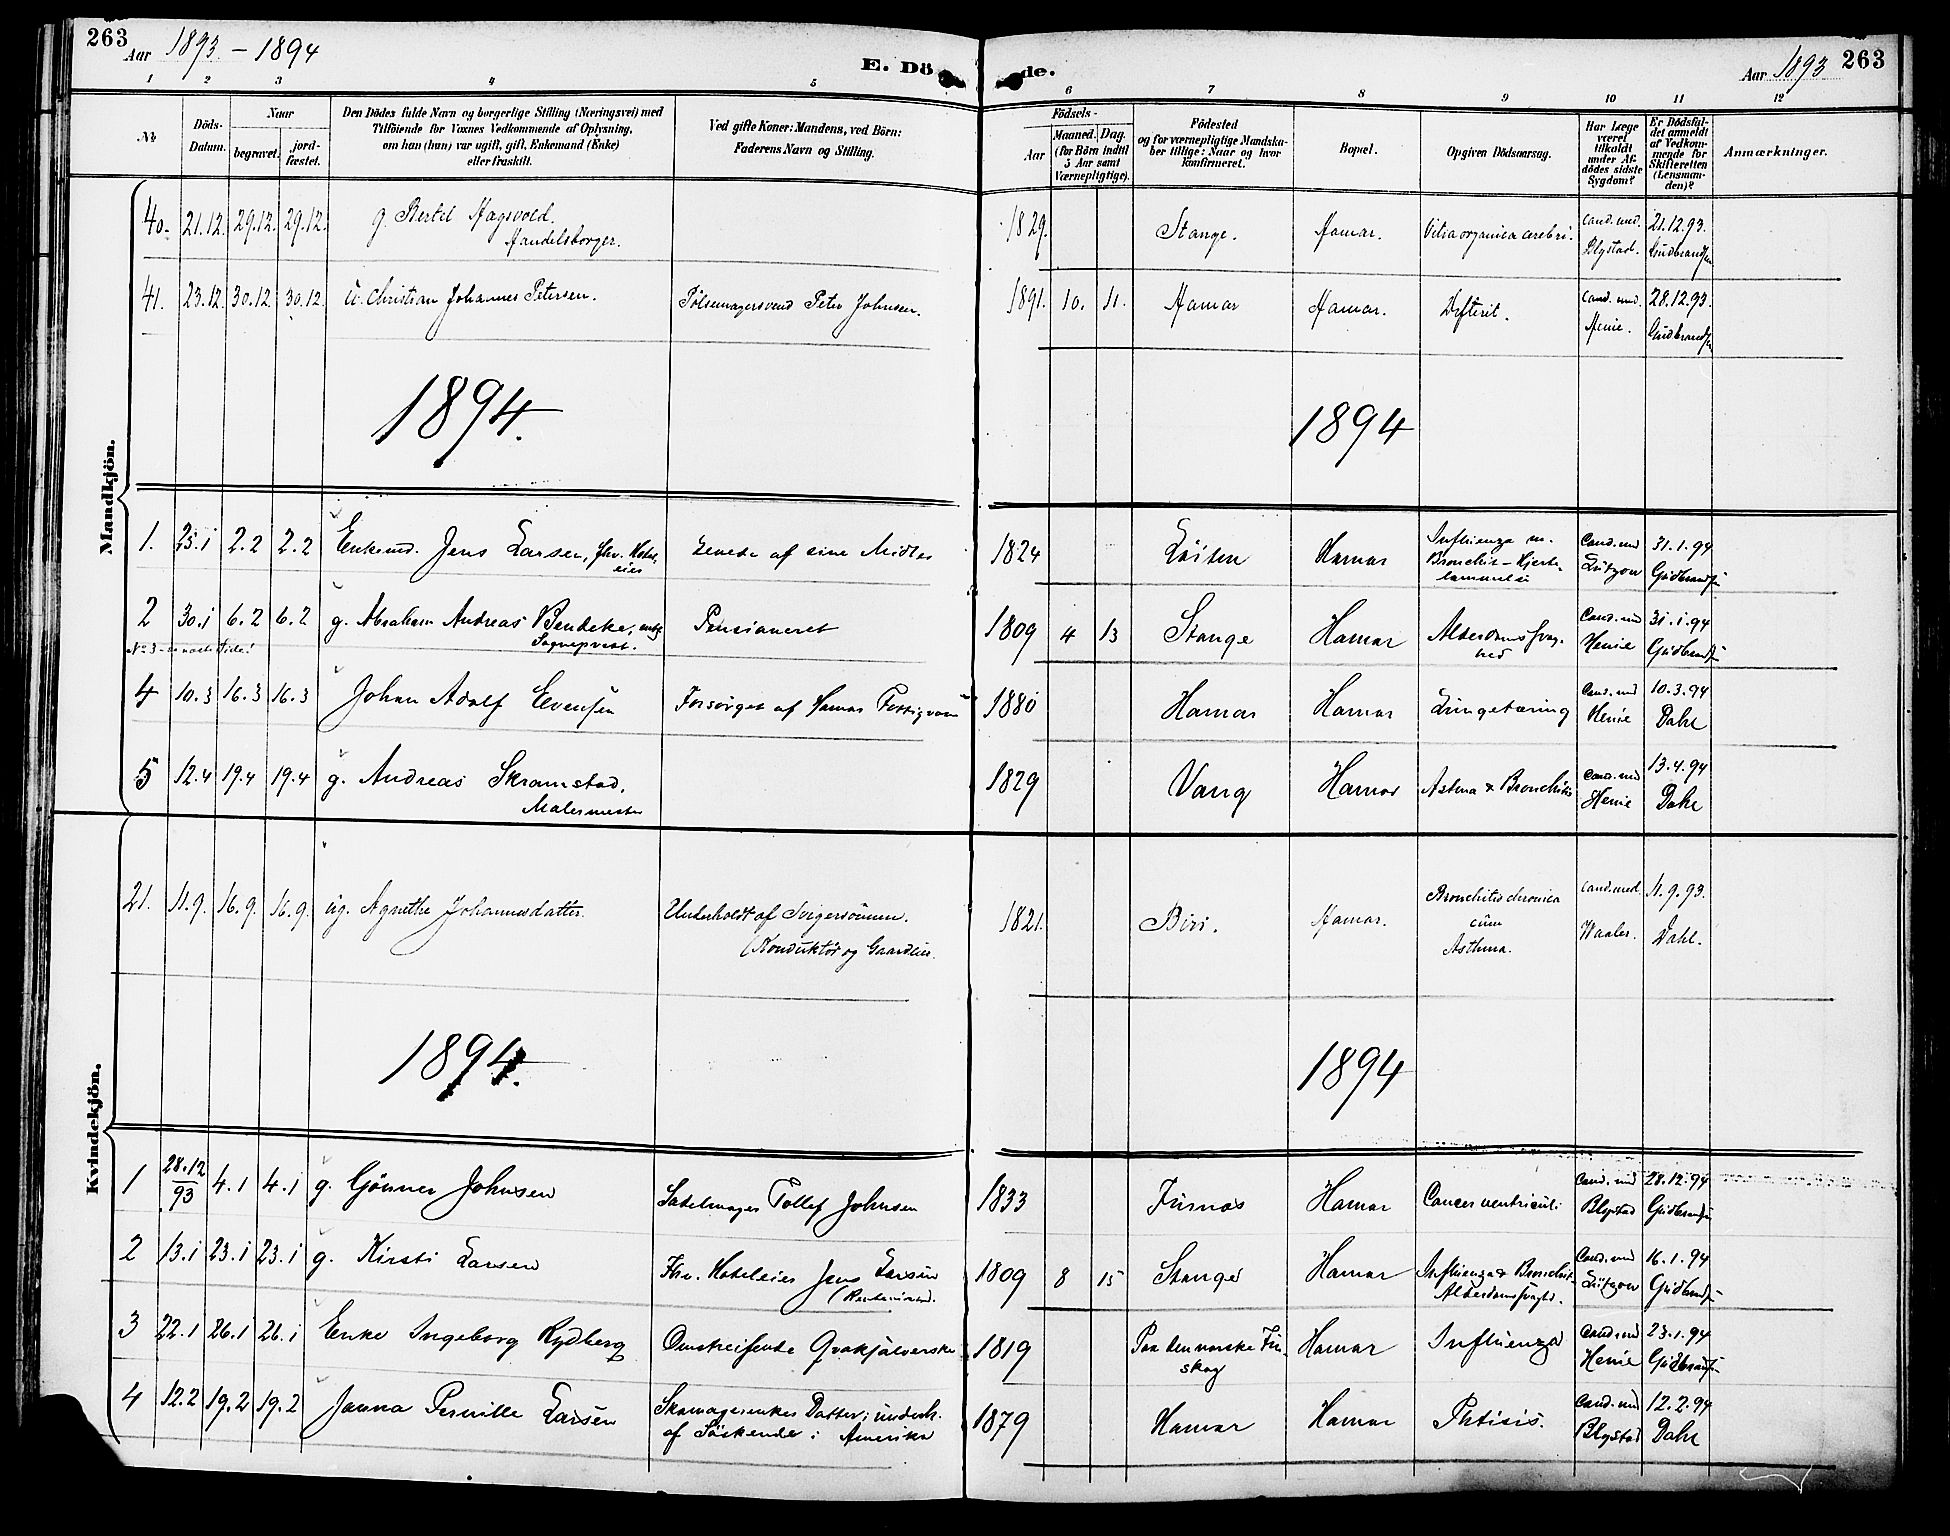 263
Aar 1893 – 1894
E. Dö
de.
Aar 1893
263
1 2 3 4 5 6 7 8 9 10 11 12
No.
Döds-
Datum.
Naar
begravet.
jord-
fæstet.
Den Dödes fulde Navn og borgerlige Stilling (Næringsvei) med
Tilföiende for Voxnes Vedkommende af Oplysning,
om han (hun) var ugift, gift, Enkemand (Enke)
eller fraskilt.
Ved gifte Koner: Mandens, ved Börn:
Faderens Navn og Stilling.
Födsels-
Aar
Maaned. Dag.
(for Börn indtil
5 Aar samt
Værnepligtige).
Födested
og for værnepligtige Mandska-
ber tillige: Naar og hvor
konfirmeret.
Bopæl.
Opgiven Dödsaarsag.
Har Læge
været
tilkaldt
under Af-
dödes sidste
Sygdom?
Er Dödsfal-
det anmeldt
af Vedkom-
mende for
Skifteretten
(Lensman-
den)?
Anmærkninger.
Mandkjön.
40. 21.12. 29.12. 29.12. g. Bertel Hagsvold. 1829. Stange. Hamar. Vitia organica cerebri. cand. med. 21.12.93.
Handelsborger. Blystad. Gudbrandsen
41. 23.12. 30.12. 30.12. u. Christian Johannes Petersen. Pölsemagersvend Peter Johnsen. 1891. 10. 11. Hamar Hamar. Difterit. cand. med. 28.12.93.
Henie. Gudbrandsen
1894. 1894
1. 25.1 2.2 2.2 Enkemd. Jens Larsen, fhv. Hotel- Levede af sine Midler 1824 Löiten Hamar Influenza m. Cand. med 31.1.94
eier Bronchit – Hjerte- Lützow Gudbrandsen
lammelse
2 30.1 6.2 6.2 g. Abraham Andreas Bendeke, Pensioneret 1809 4 13 Stange Hamar Alderdomssvag- Cand. med 31.1.94
Sogneprest. hed Henie Gudbrandsen
No 3 næste Side!
4 10.3 16.3 16.3 Johan Adolf Evensen Forsörget af Hamar Fattigvæsen 1880 Hamar Hamar Lungetæring Cand. med 10.3.94
Henie Dahl
5 12.4 19.4 19.4 g. Andreas Skramstad. 1829 Vang Hamar Astma & Bronchitis Cand. med 13.4.94
Malermester Henie Dahl
Kvindekjön.
21. 11.9. 16.9. 16.9. ug. Agnethe Johannesdatter. Underholdt af Svigersönnen. 1821. Biri. Hamar. Bronchitis chronica cand. med. 11.9.93.
(Konduktör og Gaardeier. cum Waaler. Dahl.
Asthma.
1894. 1894
1 28.12/93 4.1 4.1 g. Gönner Johnsen Sadelmager Tollef Johnsen 1833 Furnæs Hamar Cancer ventriculi Cand. med 28.12.94
Blystad Gudbrandsen
2 13.1 23.1 23.1 g. Kirsti Larsen Fhv. Hoteleier Jens Larsen 1809 8 15 Stange Hamar Influenza & Bronchit- Cand. med 16.1.94
(Rentenist). Alderdomssvaghd. Lützow Gudbrandsen
3 22.1 26.1 26.1 Enke Ingeborg Rydberg Omstreifende Qvaksalverske 1819 Paa den norske Fin- Hamar Influenza Cand. med 23.1.94
skog Henie Gudbrandsen
4 12.2 19.2 19.2 Janna Pernille Larsen Skomagerenkes Datter; underh. 1879 Hamar Hamar Phtisis. Cand. med 12.2.94
af Söskende i Amerika Blystad Dahl